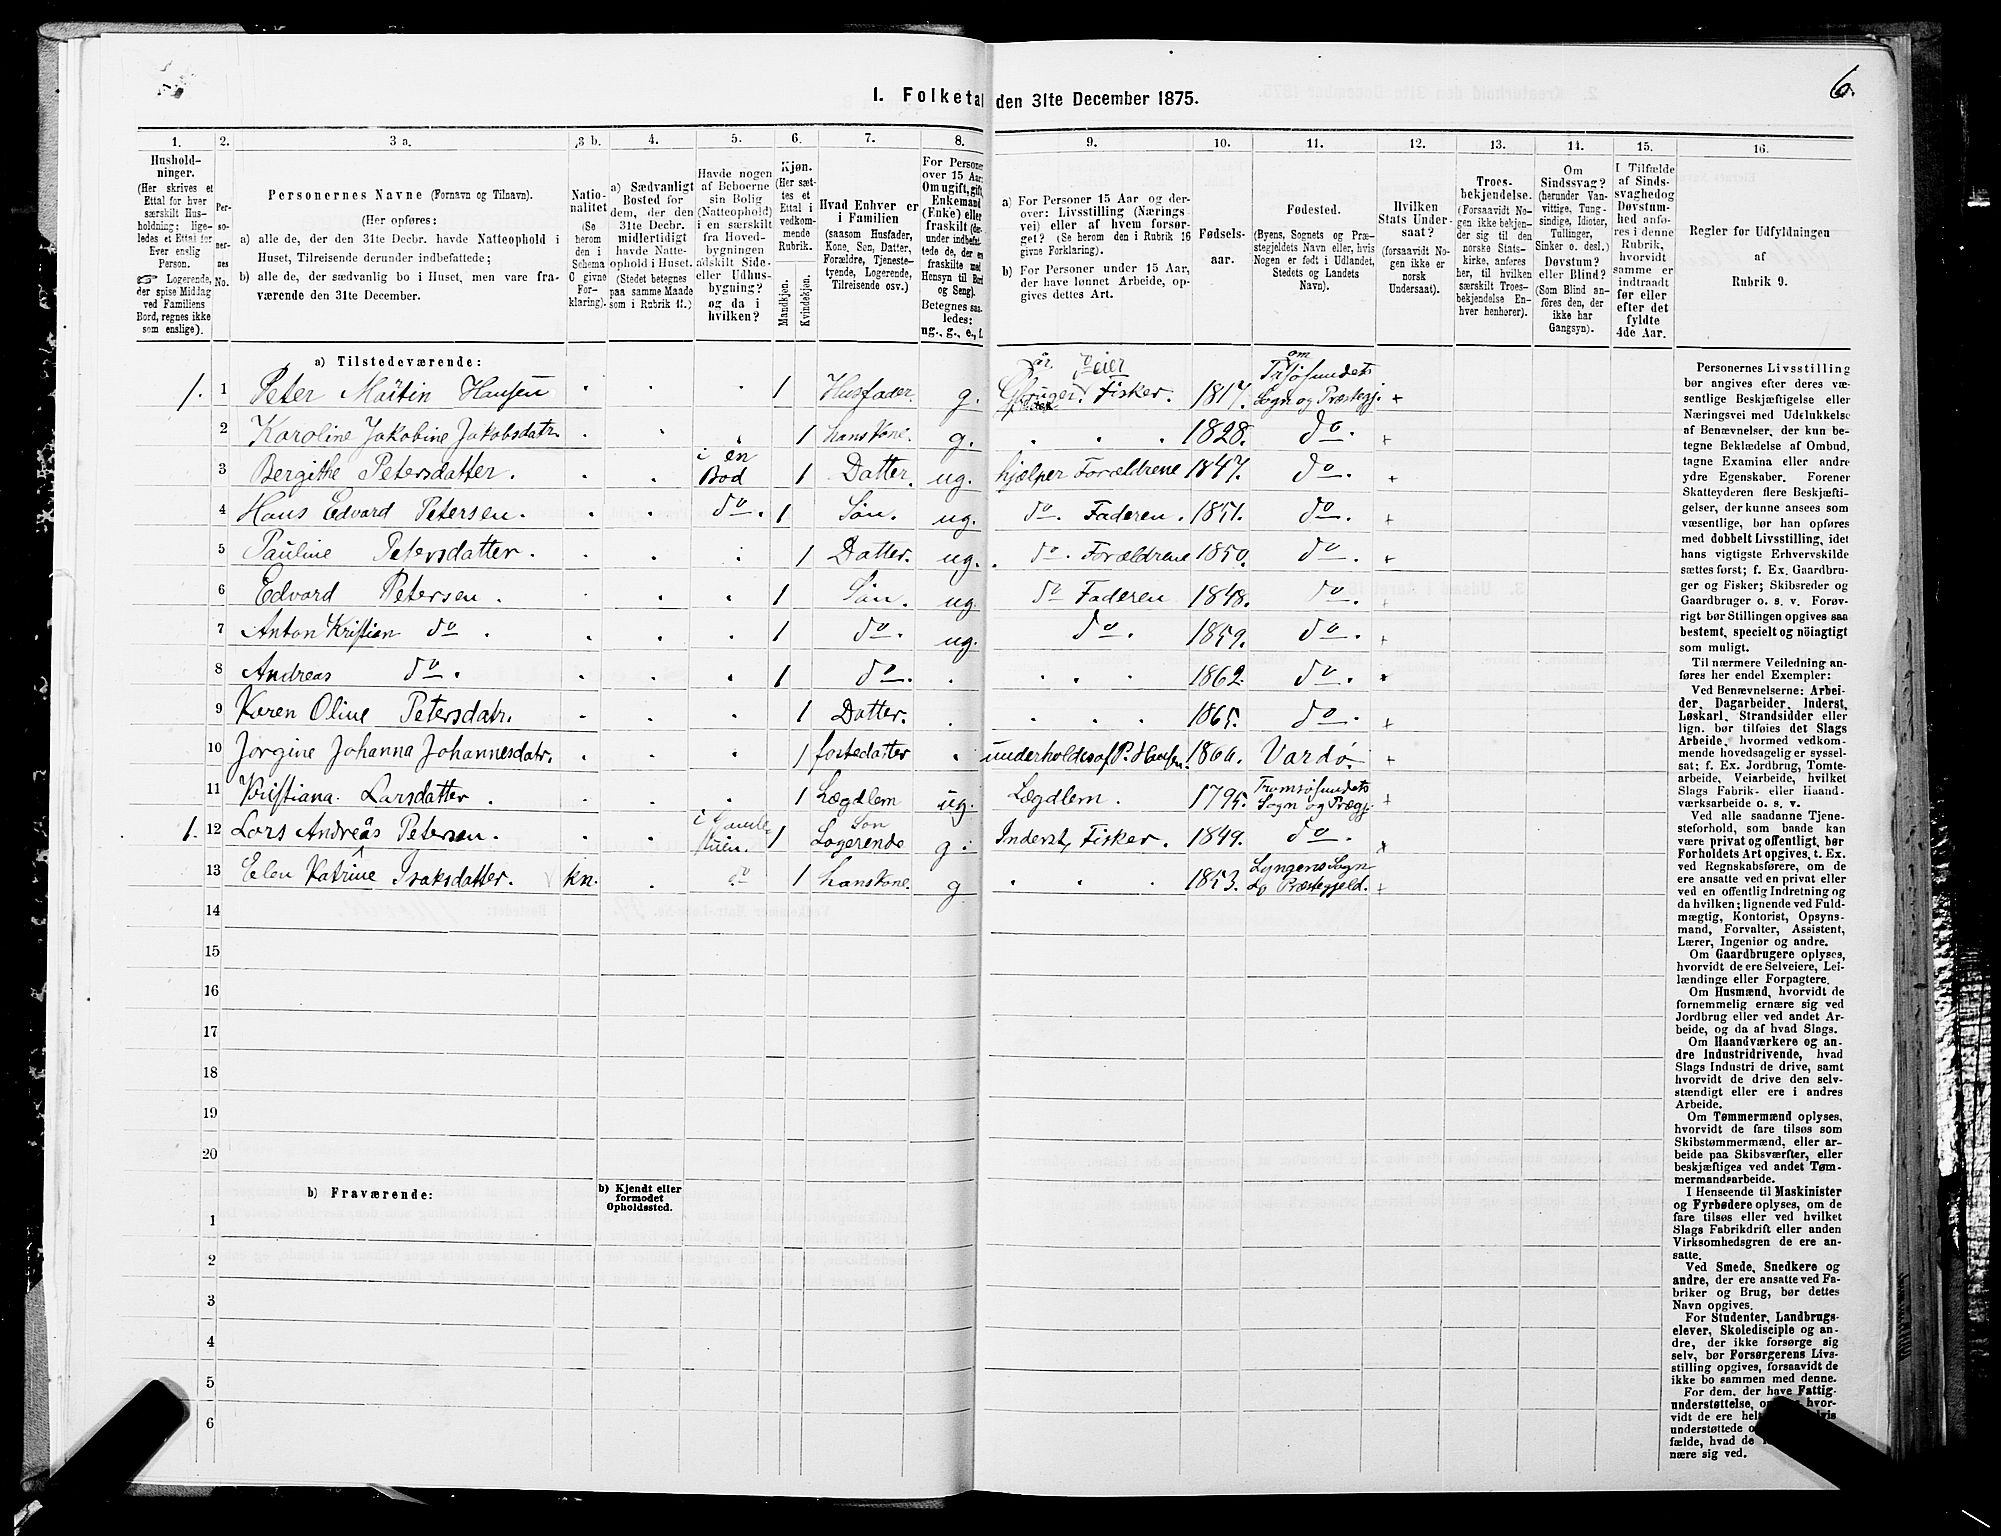 6.
1. Folketal den 31te December 1875.
1. 2. 3 a. 3 b. 4. 5. 6. 7. 8. 9. 10. 11. 12. 13. 14. 15. 16.
Hushold-
ninger.
(Her skrives et
Ettal for hver
særskilt Hus-
holdning; lige-
ledes et Ettal for
Ever enslig
Person.
Logerende,
der spise Middag
ved Familiens
Bord, regnes ikke
som enslige).
Per-
so-
ner-
nes
No.
Personernes Navne (Fornavn og Tilnavn).
(Her opføres:
a) alle de, der den 31te Decbr. havde Natteophold i
Huset, Tilreisende derunder indbefattede;
b) alle de, der sædvanlig bo i Huset, men vare fra-
værende den 31te December.
Natio-
nalitet
(Se
herom
den i
Schema
O givne
For-
klaring).
a) Sædvanligt
Bosted for
dem, der den
31te Decbr.
midlertidigt
havde Natte-
ophold i Huset.
(Stedet betegnes
paa samme Maade
som i Rubrik 11.)
Havde nogen
af Beboerne
sin Bolig
(Natteophold)
i en særskilt
fra Hoved-
bygningen
adskilt Side-
eller Udhus-
bygning?
og da i
hvilken?
Kjøn.
(Her sæt-
tes et
Ettal i
vedkom-
mende
Rubrik.
Mandkjøn.
Kvindekjøn.
Hvad Enhver er
i Familien
(saasom Husfader,
Kone, Søn, Datter,
Forældre, Tjeneste-
tyende, Logerende,
Tilreisende osv.)
For Personer
over 15 Aar:
Om ugift, gift,
Enkemand
(Enke) eller
fraskilt (der-
under indbefat-
tede de, der ere
fraskilte med
Hensyn til Bord
og Seng).
Betegnes saa-
ledes:
ug., g., e., f.
a) For Personer 15 Aar og der-
over: Livsstilling (Nærings-
vei) eller af hvem forsør-
get? (Se herom den i Rubrik 16
givne Forklaring).
b) For Personer under 15 Aar,
der have lønnet Arbeide, op-
gives dettes Art.
Fødsels-
aar.
Fødested.
(Byens, Sognets og Præ-
stegjeldets Navn eller, hvis
Nogen er født i Udlandet,
Stedets og Landets
Navn).
Hvilken
Stats Under-
saat?
(forsaavidt No-
gen ikke er
norsk
Undersaat).
Troes-
bekjendelse.
(Forsaavidt No-
gen ikke bekjen-
der sig til den
norske Stats-
kirke, anføres
her, til hvilken
særskilt Troes-
bekjendelse En-
hver henhører).
Om
Sindssvag?
(herunder Van-
vittige, Tung-
sindige, Idioter,
Tullinger,
Sinker o. desl.)
Døvstum?
eller Blind?
(Som Blind an-
føres den, der
ikke har
Gangsyn).
I Tilfælde
af Sinds-
svaghed og
Døvstum-
hed anfø-
res i denne
Rubrik,
hvorvidt
samme er
indtraadt
før eller
efter det
fyldte
4de Aar.
Regler for Udfyldningen
af
Rubrik 9.
a) Tilstedeværende:
1. 1 Peter Martin Hansen 1 Husfader. g. Fisker. 1817. Tromsøsundets Sogn og Præstegj.
2 Karoline Jakobine Jakobsdatr. 1 hans Kone. g. 1828. do.
3 Bergithe Petersdatter. i en Bod 1 Datter. ug. hjælper Forældrene 1847. do.
4 Hans Edvard Petersen. do. 1 Søn. ug. do. Faderen. 1851. do.
5 Pauline Petersdatter. 1 Datter. ug. do. Forældrene 1850. do.
6 Edvard Petersen. 1 Søn. ug. do Faderen 1848. do.
7 Anton Kristian do. 1 do. ug. do. 1859. do.
8 Andreas do. 1 do. 1862. do.
9 Karen Oline Petersdatr. 1 Datter. 1865. do.
10 Jorgine Johanna Johannesdatr. 1 fostedatter underholdes af P. Hansen. 1866. Vardø
11 Kristiana Larsdatter. 1 Lægdlem ug. Lægdlem. 1795. Tromsøsundets Sogn og Prægj.
1. 12 Lars Andreas Petersen. i Gamle stuen. 1 Søn Logerende g. Inderst, Fisker. 1849. do.
13 Elen Katrine Isaksdatter. kn. do 1 hans Kone. g 1853. Lyngens Sogn & Præstegjeld.
14
15
16
17
18
19
20
b) Fraværende:
b) Kjendt eller
formodet
Opholdssted.
1
2
3
4
5
6
Personernes Livsstilling
bør angives efter deres væ-
sentlige Beskjæftigelse eller
Næringsvei med Udelukkelse
af Benævnelser, der kun be-
tegne Beklædelse af Ombud,
tagne Examina eller andre
ydre Egenskaber. Forener
Skatteyderen flere Beskjæfti-
gelser, der kunne ansees som
væsentlige, bør han opføres
med dobbelt Livsstilling, idet
hans vigtigste Erhvervskilde
sættes først; f. Ex. Gaardbru-
ger og Fisker; Skibsreder og
Gaardbruger o. s. v. Forøv-
rigt bør Stillingen opgives saa
bestemt, specielt og nöiagtigt
som muligt.
Til nærmere Veiledning an-
føres her endel Exempler:
Ved Benævnelserne: Arbei-
der, Dagarbeider, Inderst,
Løskarl, Strandsidder eller
lign. bør tilføies det Slags
Arbeide, hvormed vedkom-
mende hovedsagelig er syssel-
sat; f. Ex. Jordbrug, Tomte-
arbeide, Veiarbeide, hvilket
Slags Fabrik- eller Haand-
værksarbeide o. s. v.
Ved alle saadanne Tjene-
steforhold, som baade kan
være privat og offentligt, bør
Forholdets Art opgives, t. Ex.
ved Regnskabsførere, om de
ere ansatte ved en privat eller
ved en offentlig Indretning og
da hvilken; lignende ved Fuld-
mægtig, Kontorist, Opsyns-
mand, Forvalter, Assistent,
Lærer, Ingeniør og andre.
Om Gaardbrugere oplyses,
hvorvidt de ere Selveiere, Lei-
lændinge eller Forpagtere.
Om Husmænd, hvorvidt de
fornemmelig ernære sig ved
Jordbrug eller ved andet Ar-
beide, og da af hvad Slags.
Om Haandværkere og an-
dre Industridrivende, hvad
Slags Industri de drive, samt
hvorvidt de drive den selv-
stændigt eller ere i andres
Arbeide.
Om Tømmermænd oplyses,
hvorvidt de fare tilsøs som
Skibstømmermænd, eller ar-
beide paa Skibsværfter, eller
beskjæftiges ved andet Tøm-
mermandsarbeide.
I Henseende til Maskinister
og Fyrbødere oplyses, om de
fare tilsøs eller ved hvilket
Slags Fabrikdrift eller anden
Virksomhedsgren de ere an-
satte.
Ved Smede, Snedkere og
andre, der ere ansatte ved Fa-
briker og Brug, bør dettes
Navn opgives.
For Studenter, Landbrugs-
elever, Skoledisciple og an-
dre, der ikke forsørge sig
selv, bør Forsørgerens Livs-
stilling opgives, forsaavidt de
ikke bo sammen med denne.
For dem, der have Fattig-
understøttelse, hvor-
vidt de ere
understøttede
fælde, hvad de
nære sig ved.